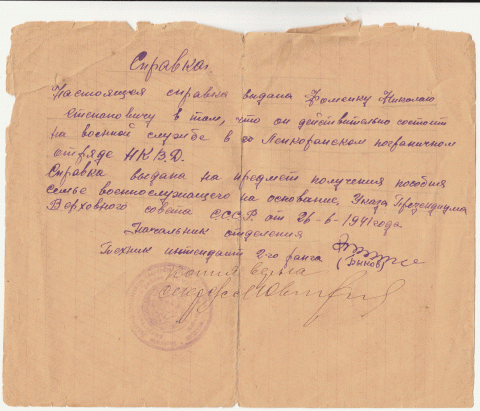 Справка.
Настоящая справка выдана Фоменку Николаю
Степановичу в том, что он действительно состоит
на военной службе в Ленкоранском пограничном
отряде НКВД.
Справка выдана на предмет получения пособия
семье военнослужащего на основание, Указа Президиума
Верховного совета СССР от 26-6-1941 года.
Начальник отделения
Техник интендант 2-го ранга (Быков)
копия верна